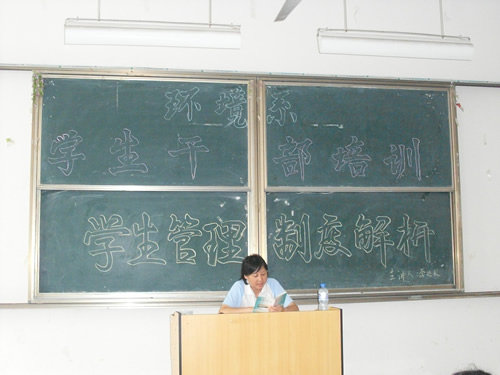 环境系
学生干部培训
学生管理制度解析